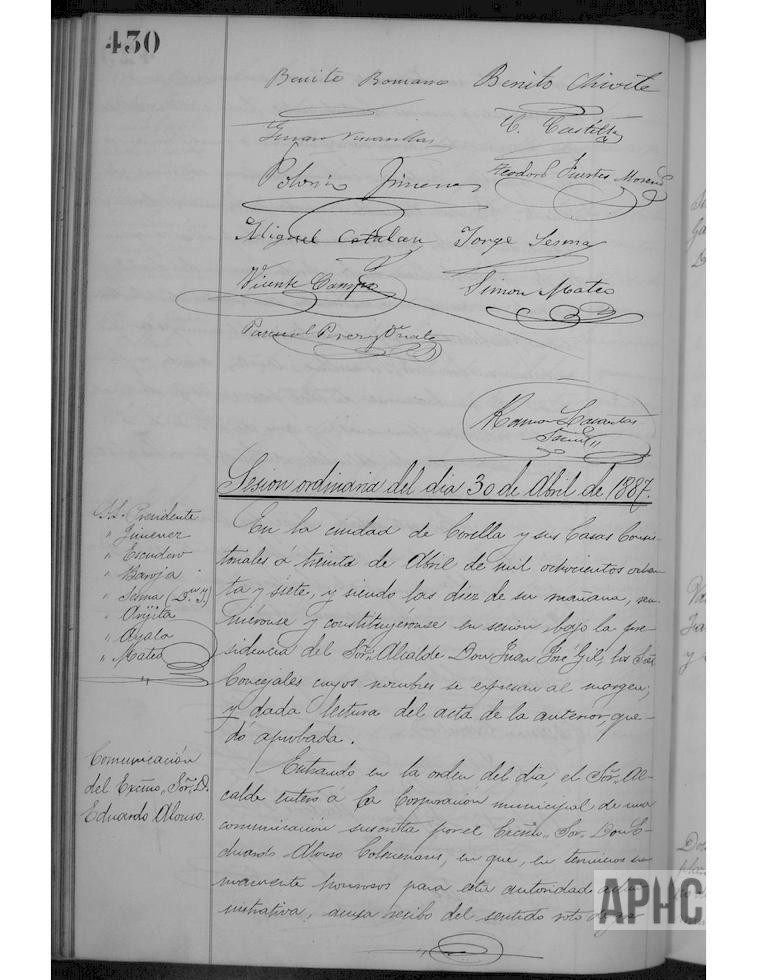 430
Benito Romano Benito Chivite
C. Castillo
Polonio Jimenez Teodoro Fuertes Moreno
Miguel Catalan Jorge Sesma
Vicente Campo Simon Mateo
Pascual Perez y Oñate
Ramon
Sesion ordinaria del dia 30 de Abril de 1887.
S.S. Presidente
" Jimenez
" Escudero
" Baroja
" Sesma (D.n J.)
" Arijita
" Ayala
" Mateo
En la ciudad de Corella y sus Casas Consis-
toriales á treinta de Abril de mil ochocientos ochen-
ta y siete, y siendo las diez de su mañana, reu-
niéronse y constituyéronse en sesion, bajo la pre-
sidencia del Sor. Alcalde Don Juan José Gil, los Sres
Concejales cuyos nombres se expresan al margen;
y dada lectura del acta de la anterior, que-
dó aprobada.
Comunicación
del Excmo. Sor. D.
Eduardo Alonso.
Entrando en la orden del dia, el Sor. Al-
calde enteró á la Corporación municipal de una
comunicación suscrita por el Excmo. Sor. Don E-
duardo Alonso Colmenares, en que, en términos su-
mamente honrosos para esta autoridad admi-
nistrativa, acusa recibo del sentido voto de
APHC